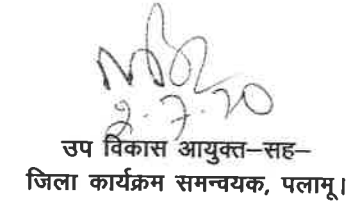 2.7.20
उप विकास आयुक्त–सह–
जिला कार्यक्रम समन्वयक, पलामू।